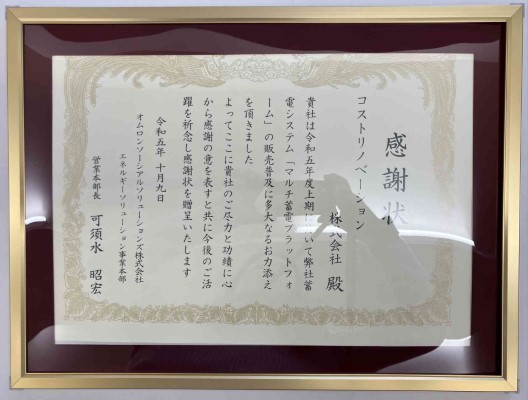 感謝状
コストリノベーション
株式会社 殿
貴社は令和五年度上期において弊社蓄
電システム「マルチ蓄電プラットフォ
ーム」の販売普及に多大なるお力添え
を頂きました
よってここに貴社のご尽力と功績に心
から感謝の意を表すと共に今後のご活
躍を祈念し感謝状を贈呈いたします
令和五年十月九日
オムロンソーシアルソリューションズ株式会社
エネルギーソリューション事業本部
営業本部長 可須水 昭宏